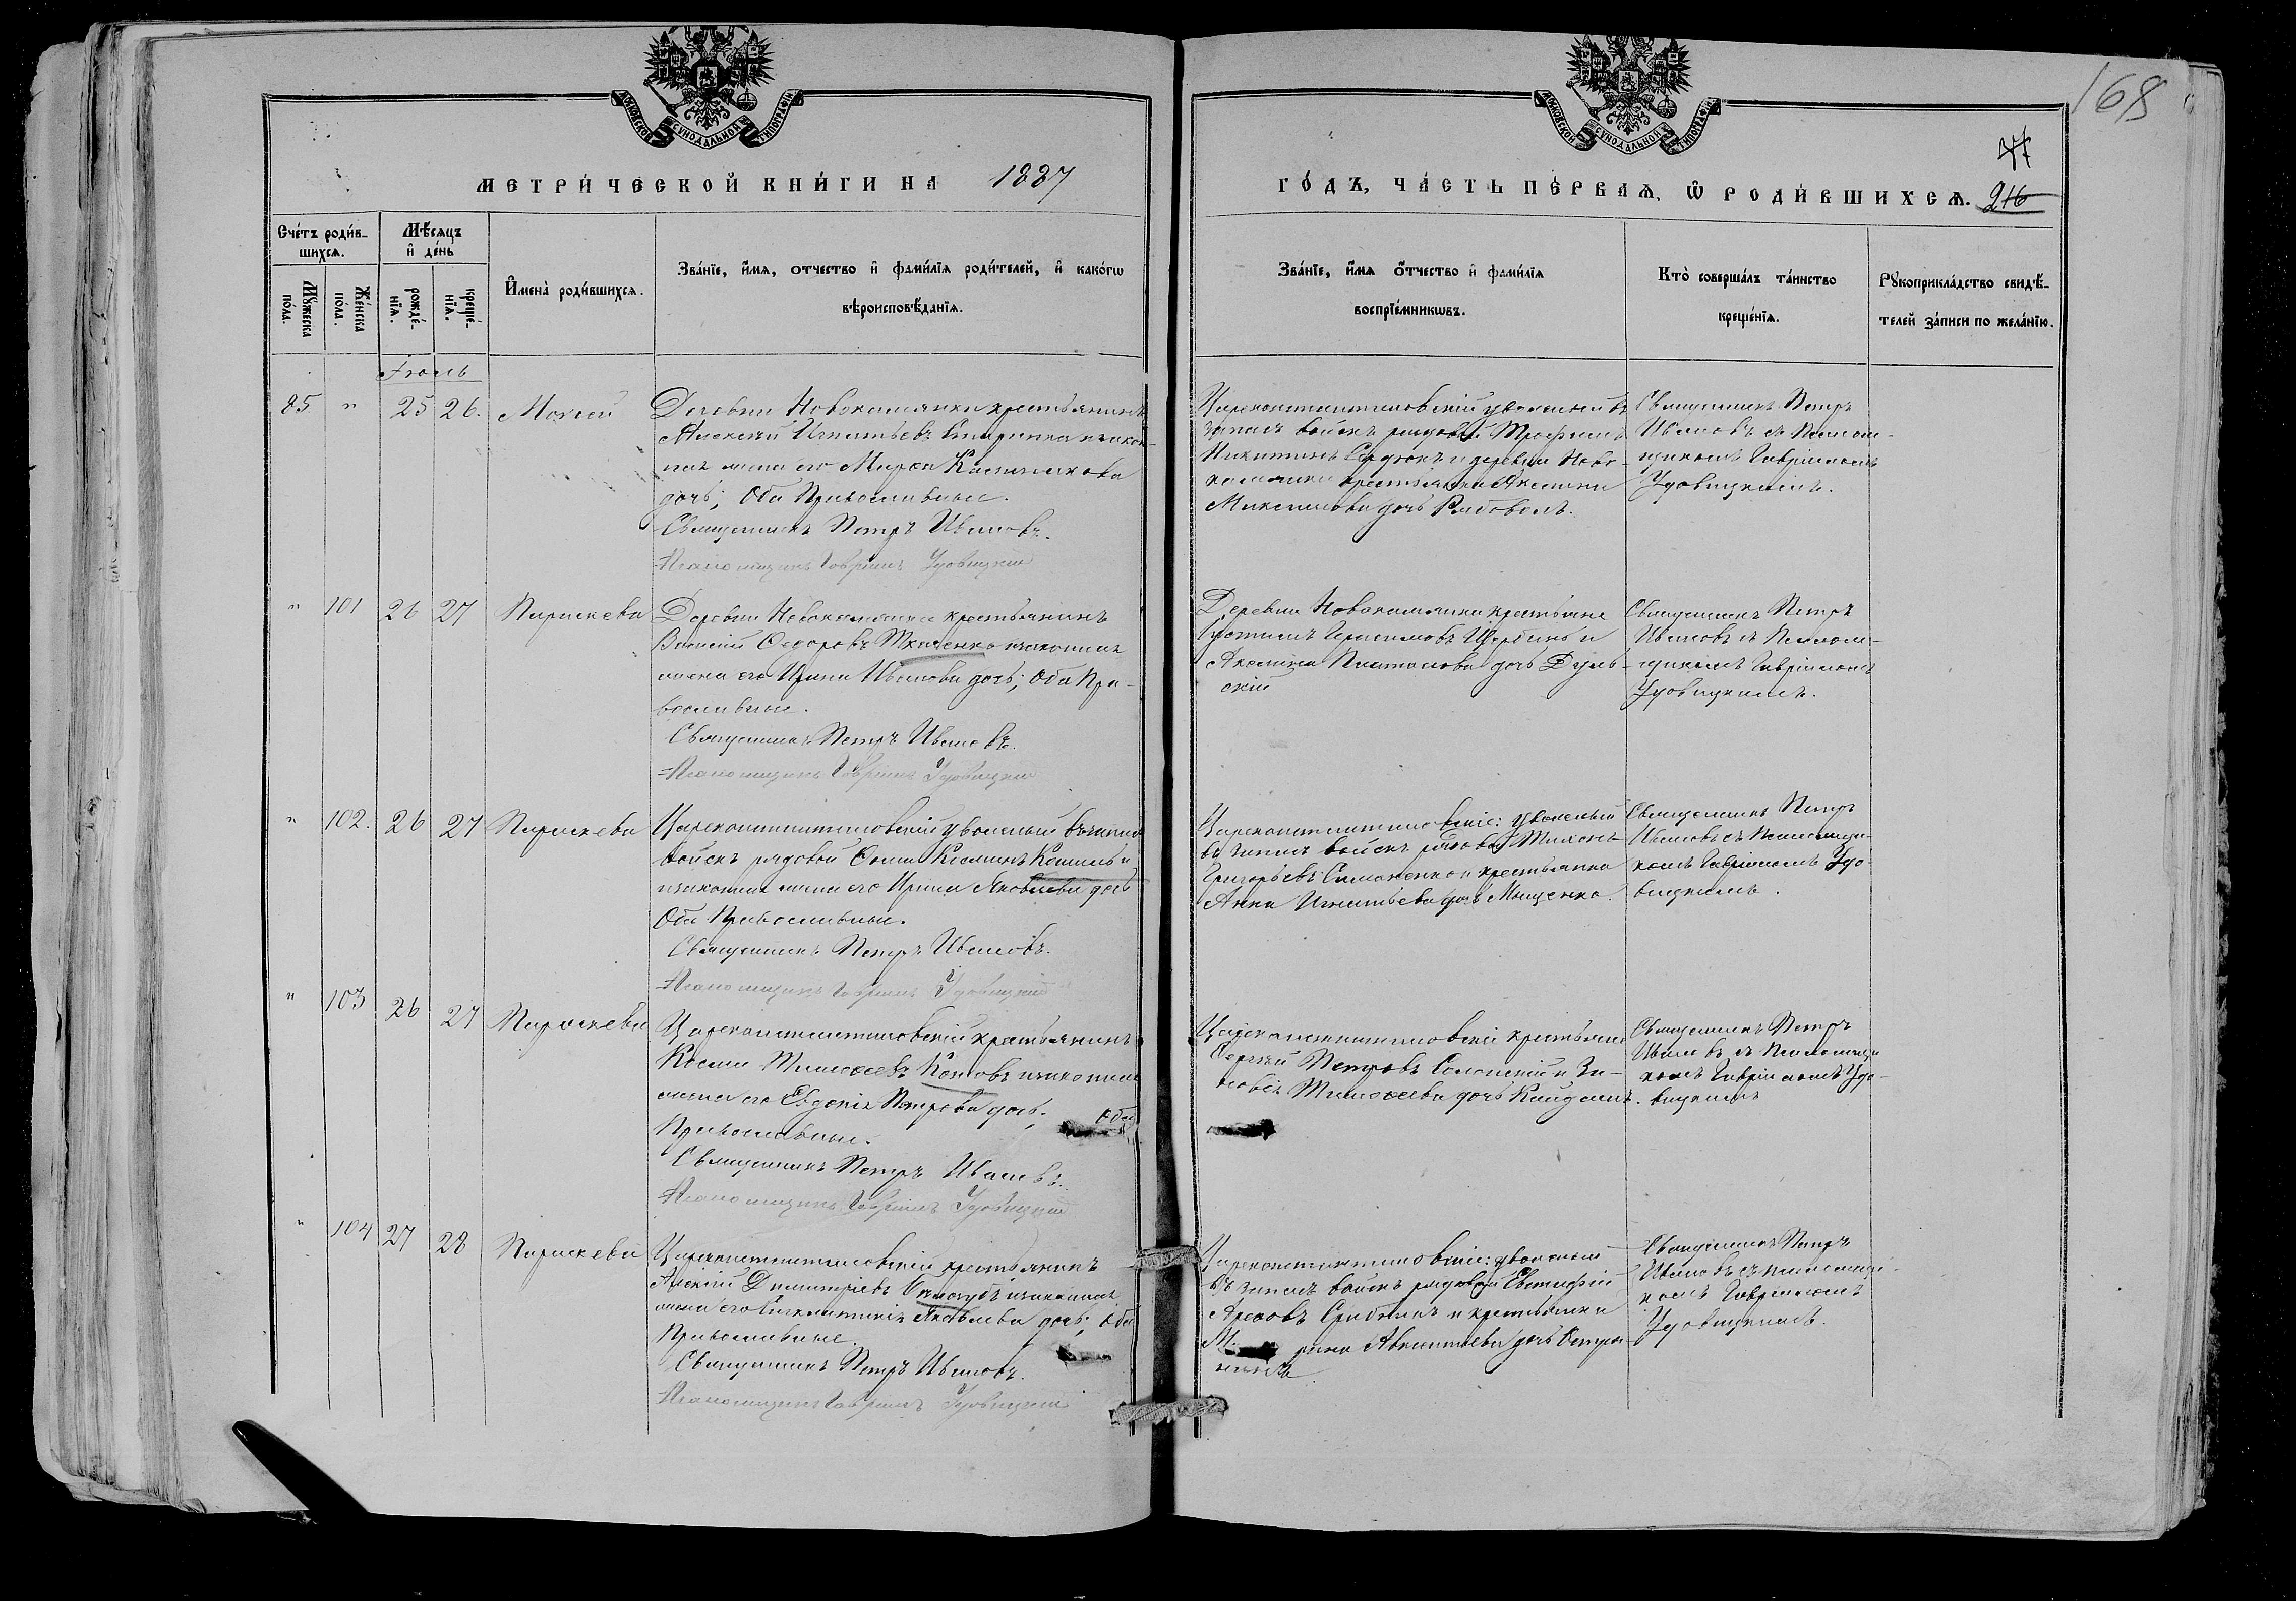 168
МОСКОВСКОЙ СУНОДАЛЬНОЙ ТИПОГРАФІИ
МОСКОВСКОЙ СУНОДАЛЬНОЙ ТИПОГРАФІИ
МЕТРИ́ЧЕСКОЙ КНИ́ГИ НА 1887
ГО́ДЪ, ЧА́СТЬ ПЕ́РВАѦ, Ѡ РОДИ́ВШИХСѦ. 216
Сче́тъ роди́в-
шихсѧ.
Мꙋ́жеска по́ла.
Же́нска по́ла.
Мѣ́сѧцъ
и҆ де́нь
рожде́-
нїѧ.
креще́-
нїѧ.
И҆мена̀ роди́вшихсѧ.
Зва́нїе, и҆́мѧ, ѻтчество и҆ фами́лїѧ роди́телей, и҆ како́гѡ
вѣроисповѣ́данїѧ.
Зва́нїе, и҆́мѧ ѻ҆́тчество и҆ фами́лїѧ
воспрїе́мникѡвъ.
Кто̀ соверша́лъ та́инство
креще́нїѧ.
Рꙋкоприкла́дство свидѣ́-
телей за́писи по жела́нїю.
Іюль
85 " 25 26. Моисей
Деревни Новокамянки крестьянинъ
Алексѣй Игнатьевъ и закон-
ная жена его
дочь; Оба Православные.
Священникъ Петръ Ивановъ.
Псаломщикъ Гавріилъ Удовицкій
Цареконстантиновскій уволеный въ
запасъ войскъ рядовой Трофимъ
Никитинъ и деревни Ново-
камянки крестьянка Акилина
дочь
Священникъ Петръ
Ивановъ съ Псалом-
щикомъ Гавріиломъ
Удовицкимъ.
" 101 26 27 Параскева
Деревни Новокамянки крестьянинъ
Василій Ѳедоровъ Ткаченко и законная
жена его Ирина Иванова дочь; Оба Пра-
вославные.
Священникъ Петръ Ивановъ.
Псаломщикъ Гавріилъ Удовицкій
Деревни Новокамянки крестьяне
Герасимовъ Щербина и
Акилина Платонова дочь Дуль-
скій
Священникъ Петръ
Ивановъ съ Псалом-
щикомъ Гавріиломъ
Удовицкимъ.
" 102. 26 27 Параскева
Цареконстантиновскій уволеный въ запасъ
войскъ рядовой Ѳома Косминъ и
законная жена его Ирина Яковлева дочь
Оба Православные.
Священникъ Петръ Ивановъ.
Псаломщикъ Гавріилъ Удовицкій
Цареконстантиновскіе: уволеный
въ запасъ войскъ рядовой Тихонъ
Григорьевъ Симоненко и крестьянка
Анна Игнатьева дочь Мищенко.
Священникъ Петръ
Ивановъ съ Псаломщи-
комъ Гавріиломъ Удо-
вицкимъ.
" 103 26 27 Параскева
Цареконстантиновскій крестьянинъ
Косма Тимоѳеевъ Котовъ и законная
жена его Евдокія Петрова дочь; Оба
Православные.
Священникъ Петръ Ивановъ.
Псаломщикъ Гавріилъ Удовицкій
Цареконстантиновскіе крестьяне
Сергій Петровъ и Зи-
новія Тимоѳеева дочь
Священникъ Петръ
Ивановъ съ Псаломщи-
комъ Гавріиломъ Удо-
вицкимъ
" 104 27 28 Параскева
Цареконстантиновскій крестьянинъ
Алексій Димитріевъ и законная
жена его Яковлева дочь; Оба
Православные.
Священникъ Петръ Ивановъ.
Псаломщикъ Гавріилъ Удовицкій
Цареконстантиновскіе: уволеный
въ запасъ войскъ рядовой Евстафій
и крестьянка
дочь
Священникъ Петръ
Ивановъ съ псаломщи-
комъ Гавріиломъ
Удовицкимъ.